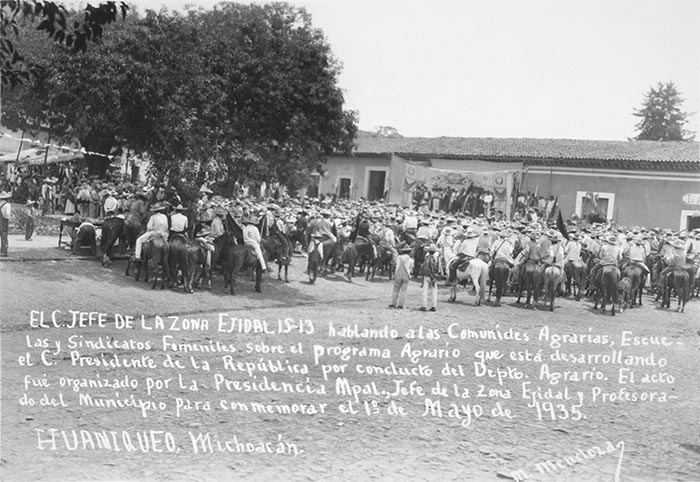 EL C. JEFE DE LA ZONA EJIDAL 15-13 hablando a las Comunides Agrarias, Escue-
las y Sindicatos Femeniles, sobre el programa Agrario que está desarrollando
el C. Presidente de la República por conducto del Depto. Agrario. El acto
fué organizado por la Presidencia Mpal., Jefe de la Zona Ejidal y Profesora-
do del Municipio para conmemorar el 1º de Mayo de 1935.
HUANIQUEO, Michoacán.
M. Mendoza